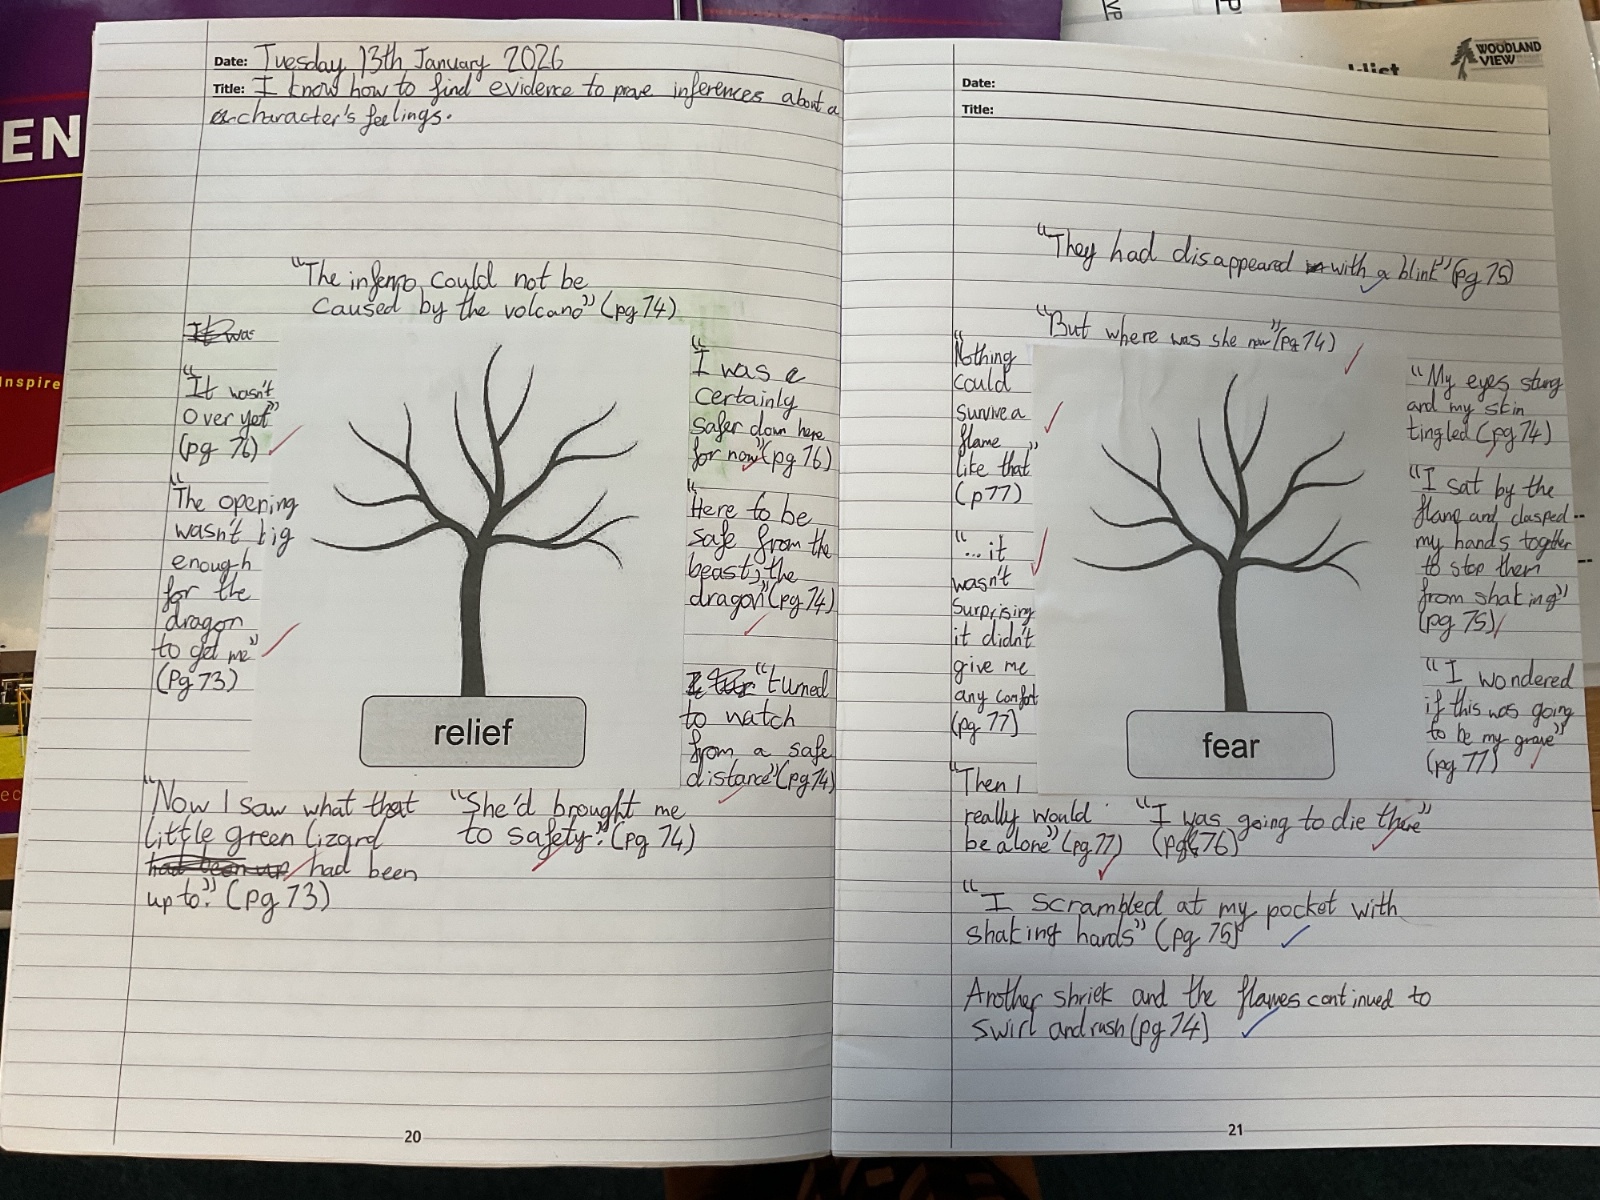 EN
Inspire
Date: Tuesday 13th January 2026
Title: I know how to find evidence to prove inferences about a
character's feelings.
"The inferno could not be
caused by the volcano" (pg 74)
It was
"It wasn't
over yet"
(pg 76)
"The opening
wasn't big
enough
for the
dragon
to get me"
(Pg 73)
"I was
certainly
safer down here
for now" (pg 76)
"Here to be
safe from the
beast, the
dragon" (pg 74)
"turned
to watch
from a safe
distance" (pg 74)
relief
"Now I saw what that
little green lizard
had been up had been
up to." (pg 73)
"She'd brought me
to safety." (pg 74)
20
WOODLAND
VIEW
Date:
Title:
"They had disappeared with a blink" (pg 75)
"But where was she now" (pg 74)
"Nothing
could
survive a
flame
like that"
(p77)
"...it
wasn't
surprising
it didn't
give me
any comfort
(pg 77)
"My eyes stung
and my skin
tingled (pg 74)
"I sat by the
flame and clasped
my hands together
to stop them
from shaking"
(pg 75)
"I wondered
if this was going
to be my grave"
(pg 77)
fear
"Then I
really would
be alone" (pg 77)
"I was going to die there"
(pg 76)
"I scrambled at my pocket with
shaking hands" (pg 75)
Another shriek and the flames continued to
swirl and rush (pg 74)
21